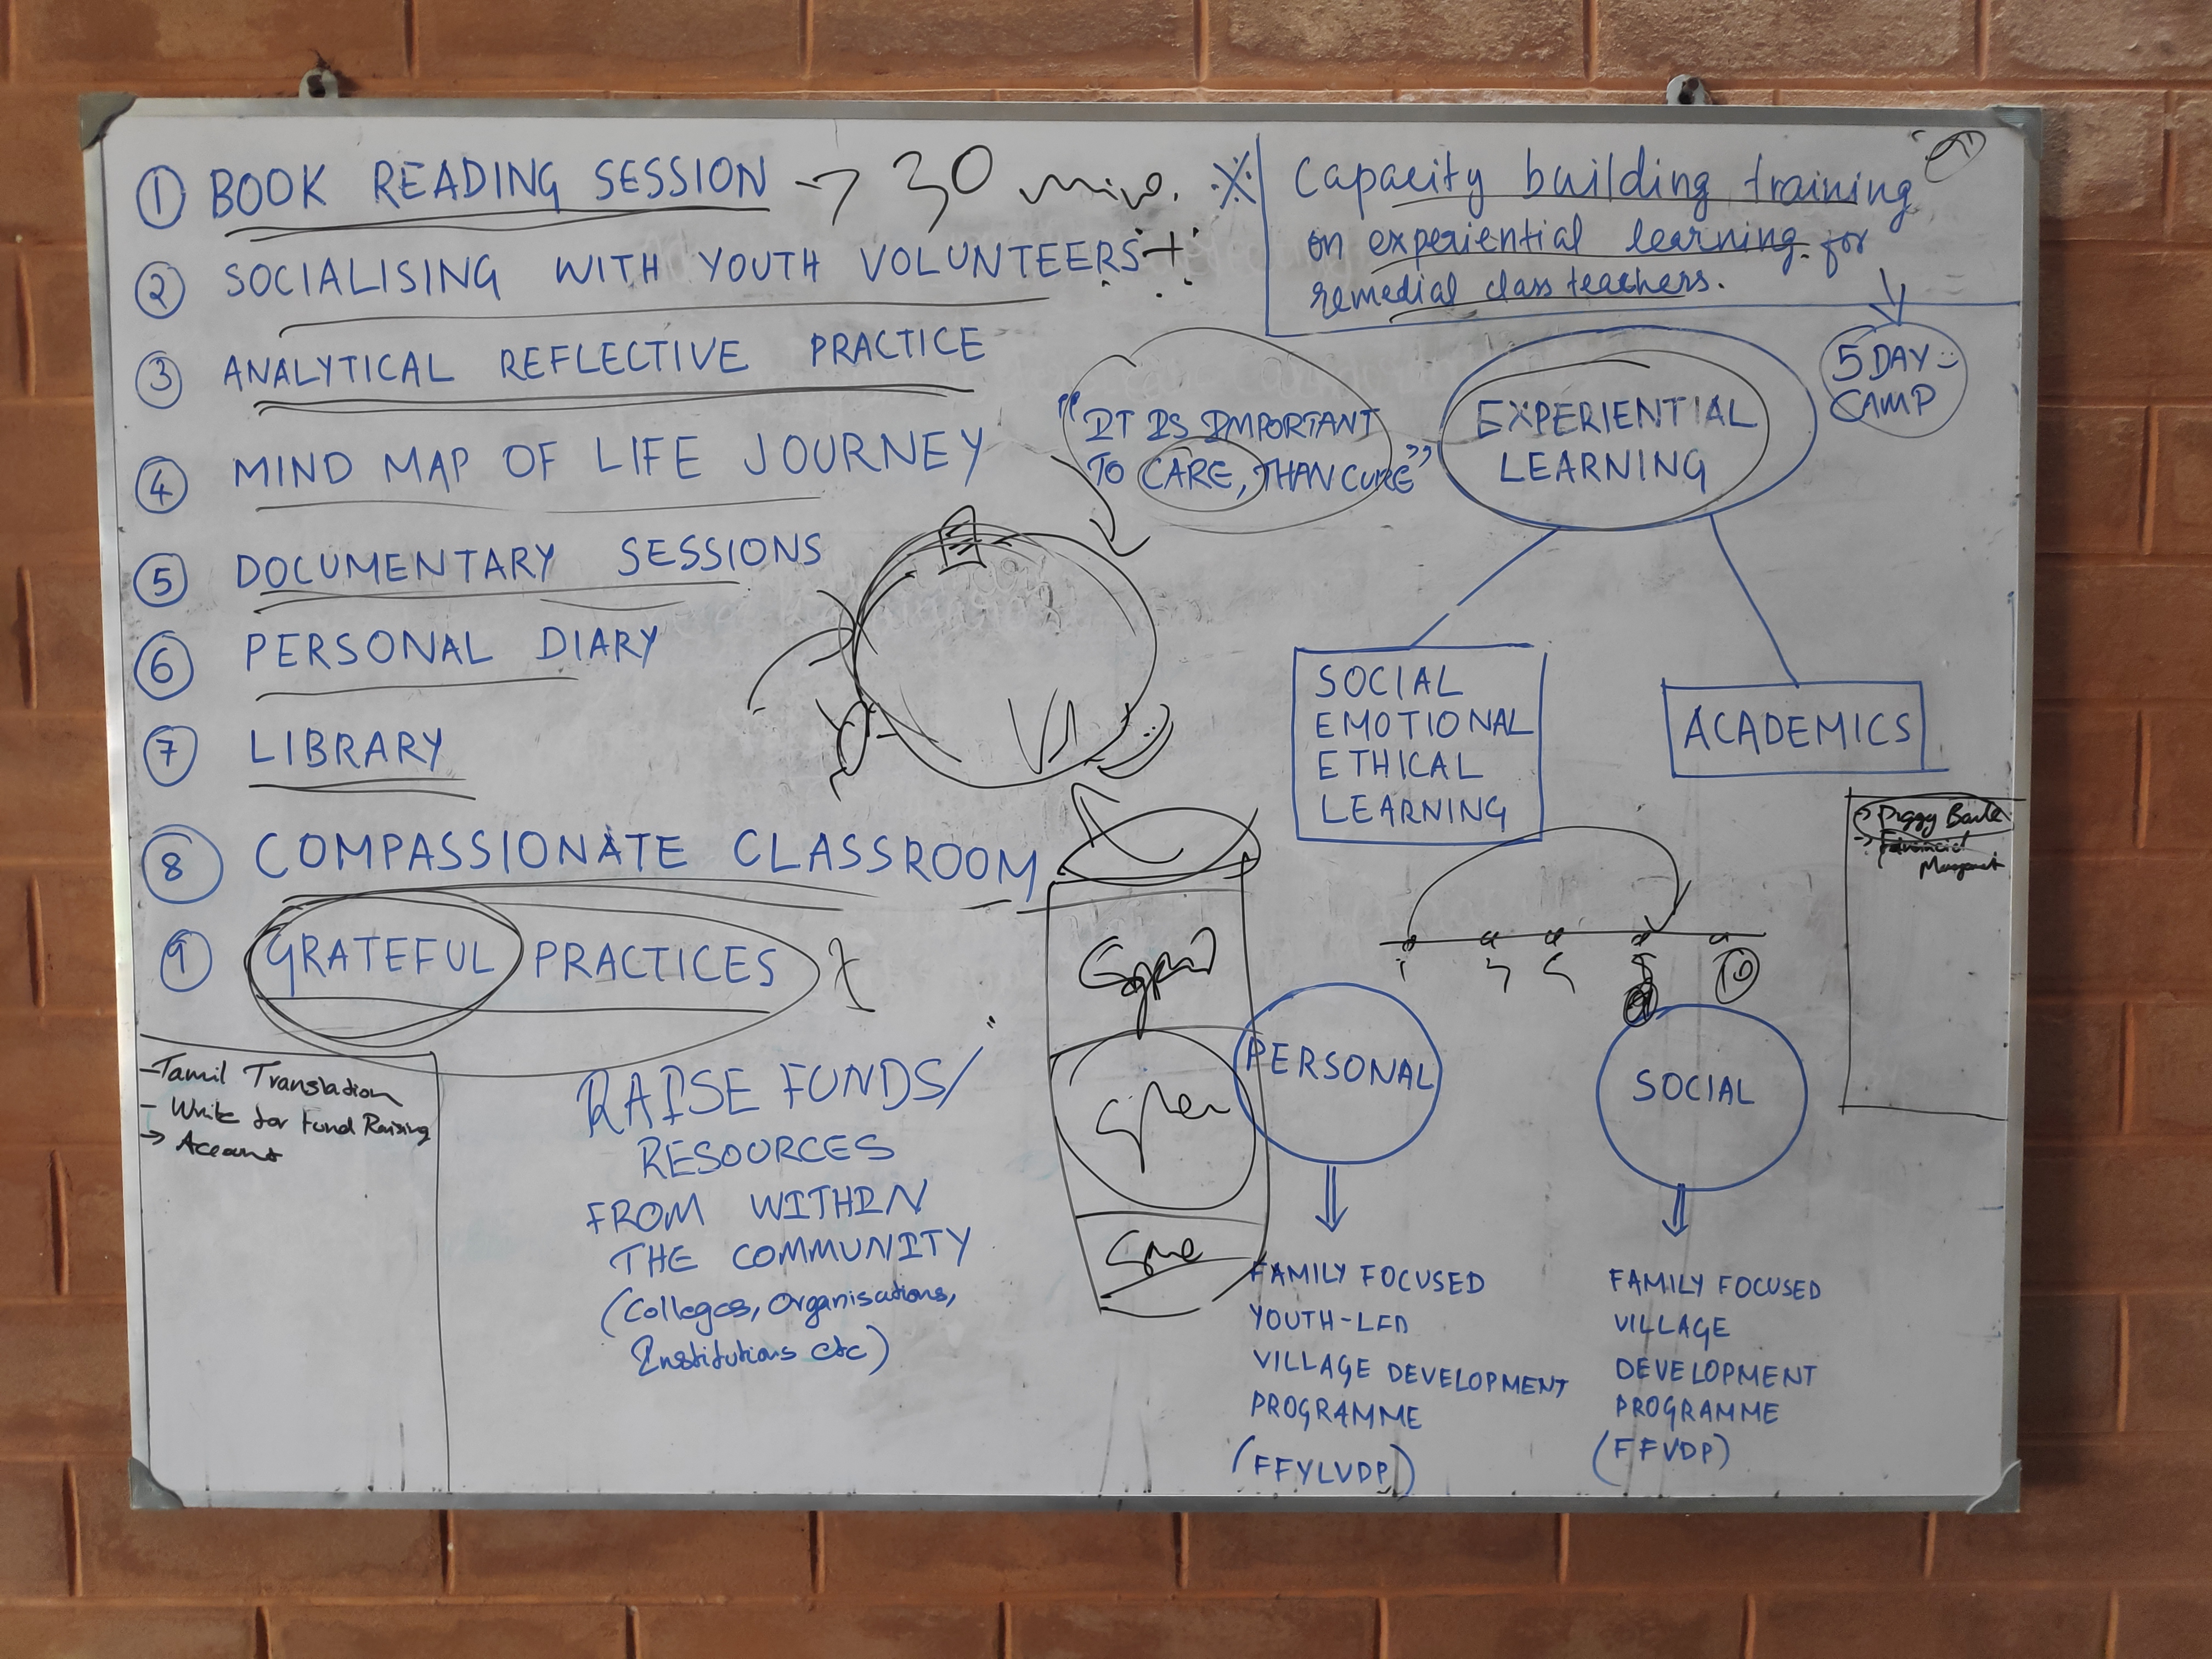 ① BOOK READING SESSION → 30 min.
② SOCIALISING WITH YOUTH VOLUNTEERS +
③ ANALYTICAL REFLECTIVE PRACTICE
④ MIND MAP OF LIFE JOURNEY
⑤ DOCUMENTARY SESSIONS
⑥ PERSONAL DIARY
⑦ LIBRARY
⑧ COMPASSIONATE CLASSROOM
⑨ GRATEFUL PRACTICES
- Tamil Translation
- Write for Fund Raising
→ Account
RAISE FUNDS/
RESOURCES
FROM WITHIN
THE COMMUNITY
(Colleges, Organisations,
Institutions etc)
Capacity building training
on experiential learning for
remedial class teachers.
5 DAY
CAMP
"IT IS IMPORTANT
TO CARE, THAN CURE"
EXPERIENTIAL
LEARNING
SOCIAL
EMOTIONAL
ETHICAL
LEARNING
ACADEMICS
→ Piggy Bank
→ Financial
Management
PERSONAL
FAMILY FOCUSED
YOUTH-LED
VILLAGE DEVELOPMENT
PROGRAMME
(FFYLVDP)
SOCIAL
FAMILY FOCUSED
VILLAGE
DEVELOPMENT
PROGRAMME
(FFVDP)